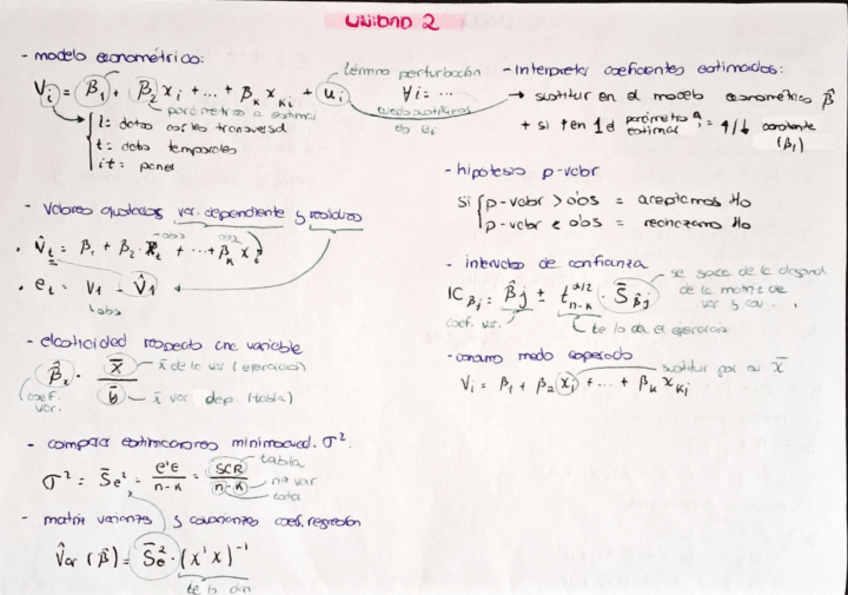 UNIDAD 2
- modelo econométrico:
Vᵢ = β₁ + β₂ xᵢ + ... + βₖ xₖᵢ + uᵢ   ∀i = ...
término perturbación
parámetros a estimar
cuando sustituimos es eᵢ
i = datos corte transversal
t = datos temporales
it = panel
- valores ajustados var. dependiente y residuos
· V̂ₜ = β₁ + β₂ · Xₜ + ... + βₖ xᵢ
obs
obs
· eₜ = V₁ - V̂₁
obs
- elasticidad respecto una variable
β̂ₓ · x̄ / ȳ
x̄ de la var (ejercicio)
x̄ var dep. (tabla)
coef. var.
- comparar estimadores minimocuad. σ²:
σ² = S̄e² = e'e / n-k = SCR / n-k
tabla
nº var
- matriz varianzas y covarianzas coef. regresión
V̂ar (β̂) = S̄e² · (x'x)⁻¹
te la dan
- Interpretar coeficientes estimados:
→ sustituir en el modelo econométrico β̂
+ si ↑ en 1 el parámetro a estimar = ↑/↓ constante (β₁)
- hipótesis p-valor
Si p-valor > 0'05 = aceptamos H₀
p-valor < 0'05 = rechazamos H₀
- intervalos de confianza
ICβⱼ = β̂ⱼ ± t n-k α/2 · S̄β̂ⱼ
se saca de la diagonal
de la matriz de
var y cov.
coef. var.
te lo da el ejercicio
- consumo medio esperado
sustituir por su x̄
Vᵢ = β₁ + β₂ xᵢ + ... + βₖ xₖᵢ